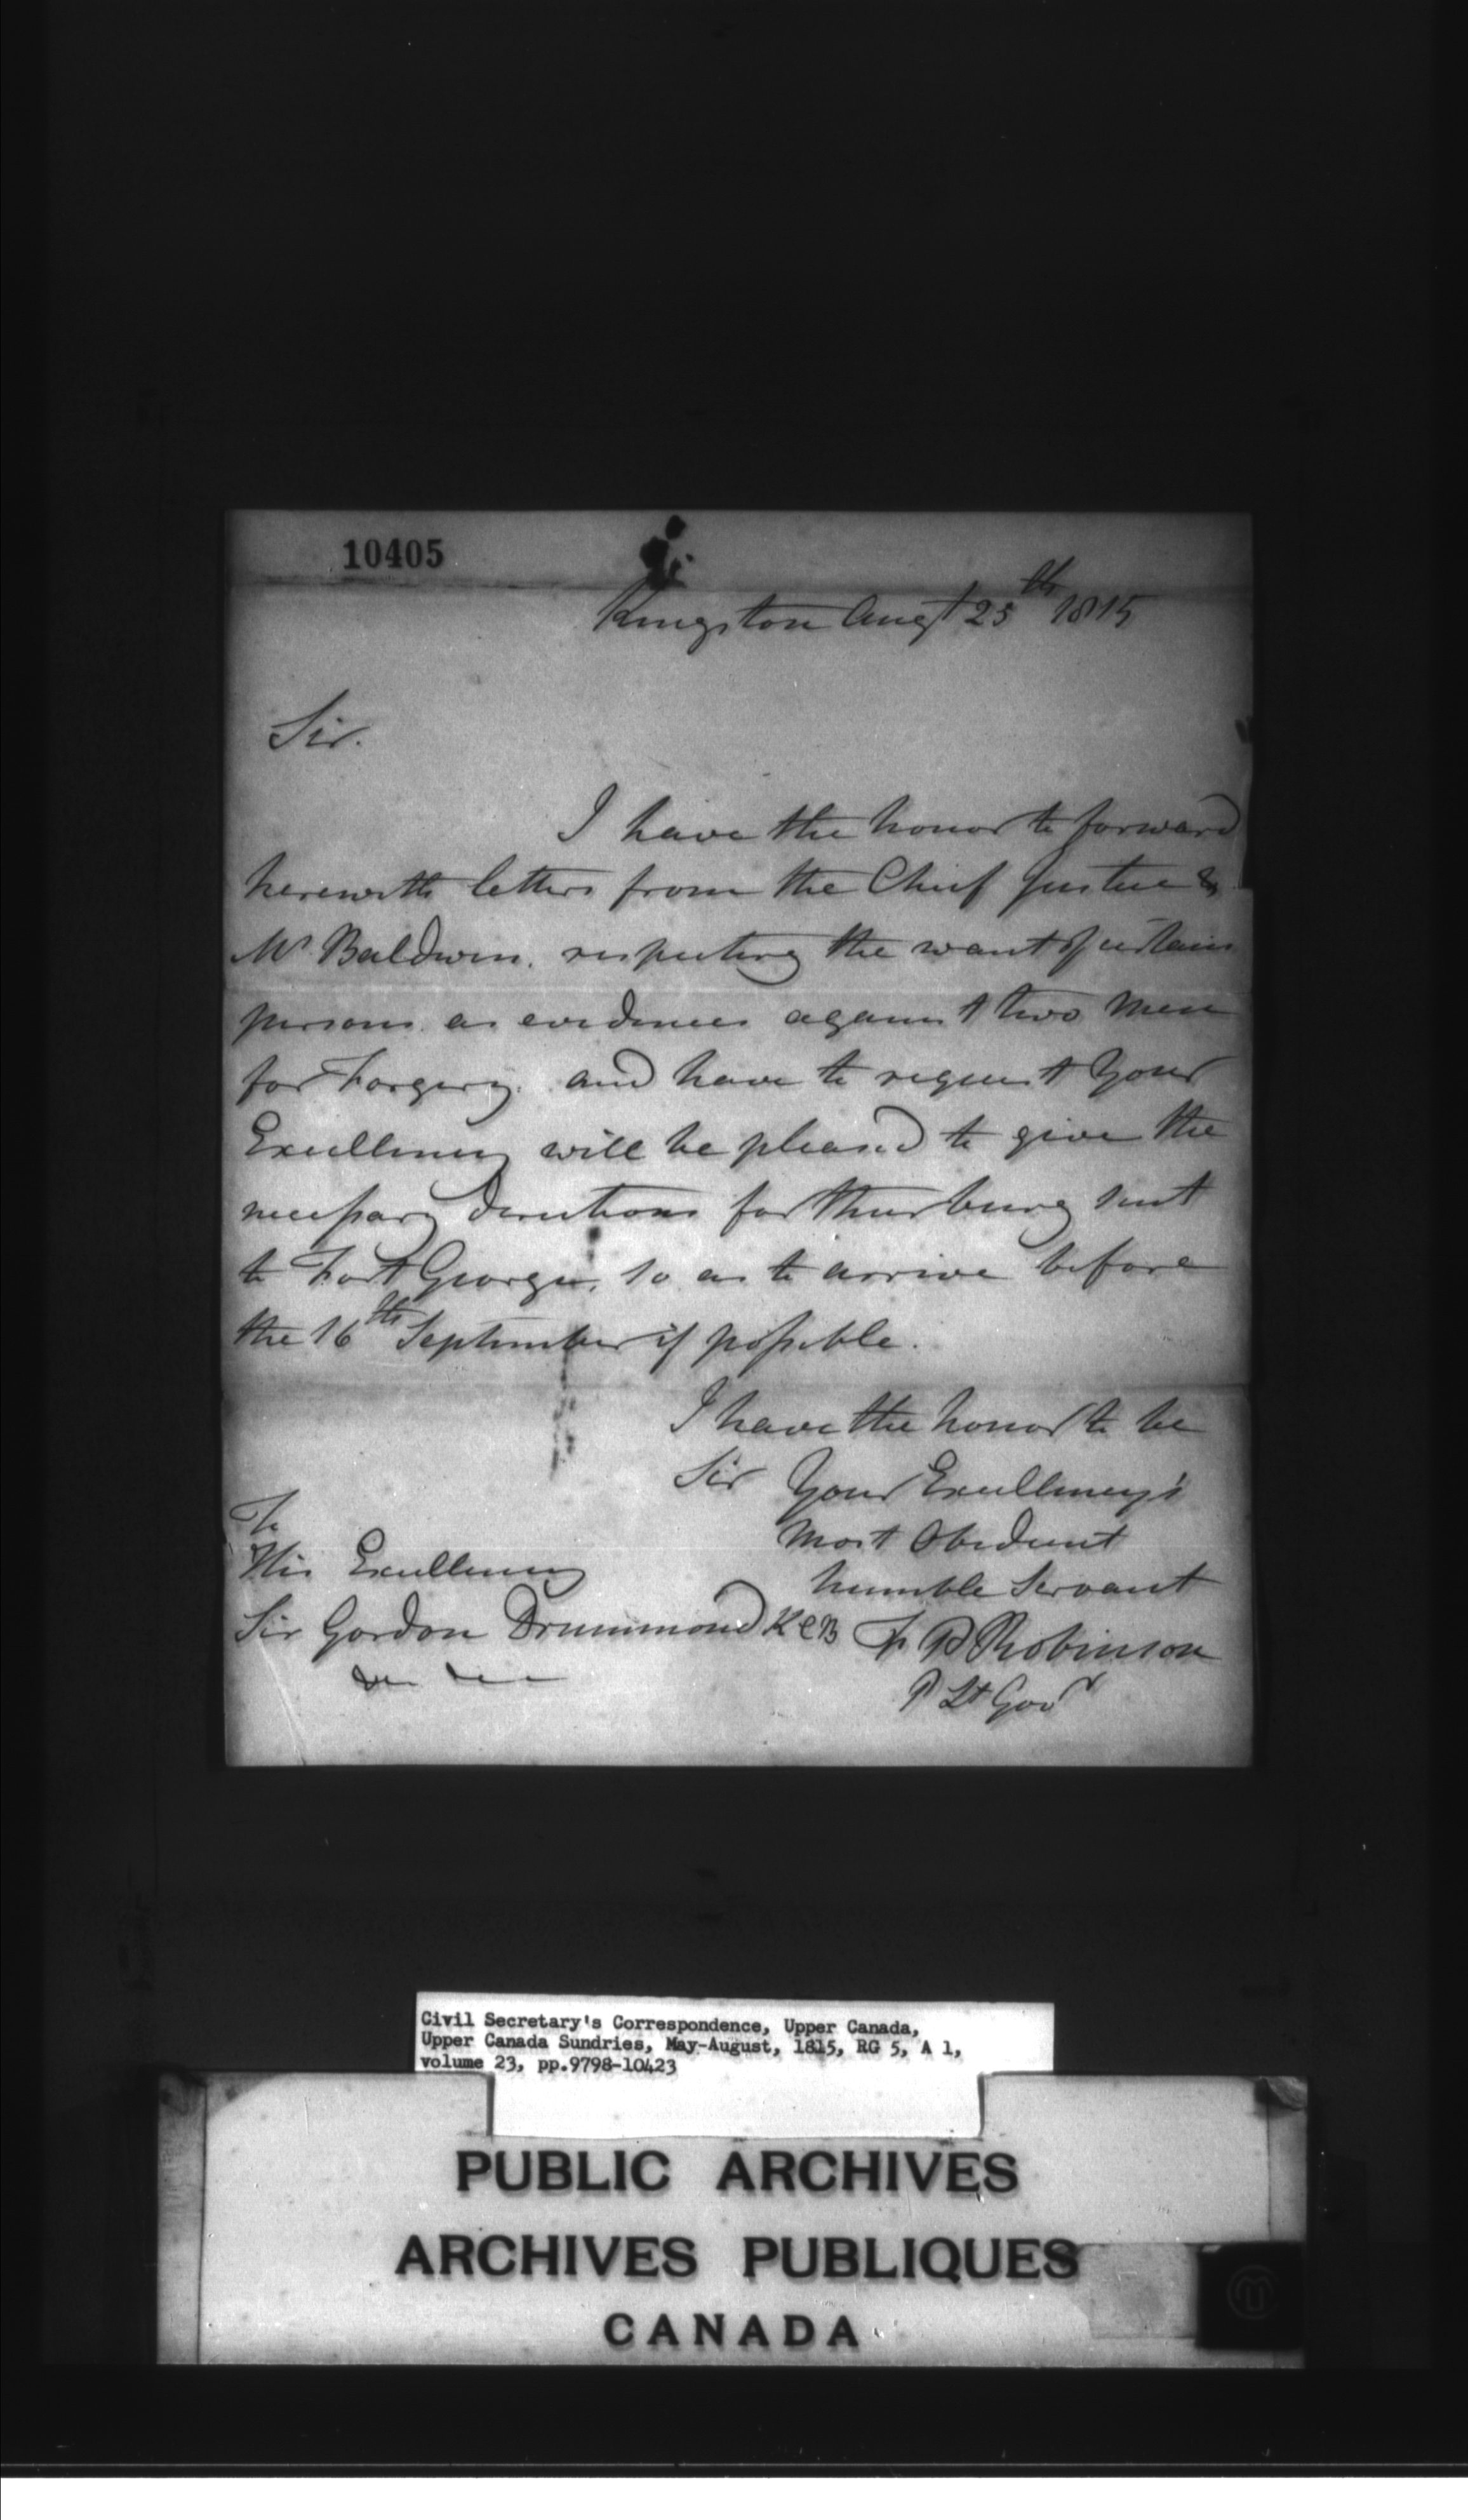 10405
Kingston Augt 25th 1815
Sir.
I have the honor to forward
herewith letters from the Chief Justice &
Mr Baldwin. respecting the want of certain
persons as evidences against two Men
for Forgery. and have to request Your
Excellency will be pleased to give the
necessary directions for their being sent
to Fort George, so as to arrive before
the 16th September if possible.
I have the honor to be
Sir Your Excellency's
Most Obedient
humble Servant
To
His Excellency
Sir Gordon Drummond KCB F P Robinson
P Lt Govr
Civil Secretary's Correspondence, Upper Canada,
Upper Canada Sundries, May-August, 1815, RG 5, A 1,
volume 23, pp.9798-10423
PUBLIC ARCHIVES
ARCHIVES PUBLIQUES
CANADA